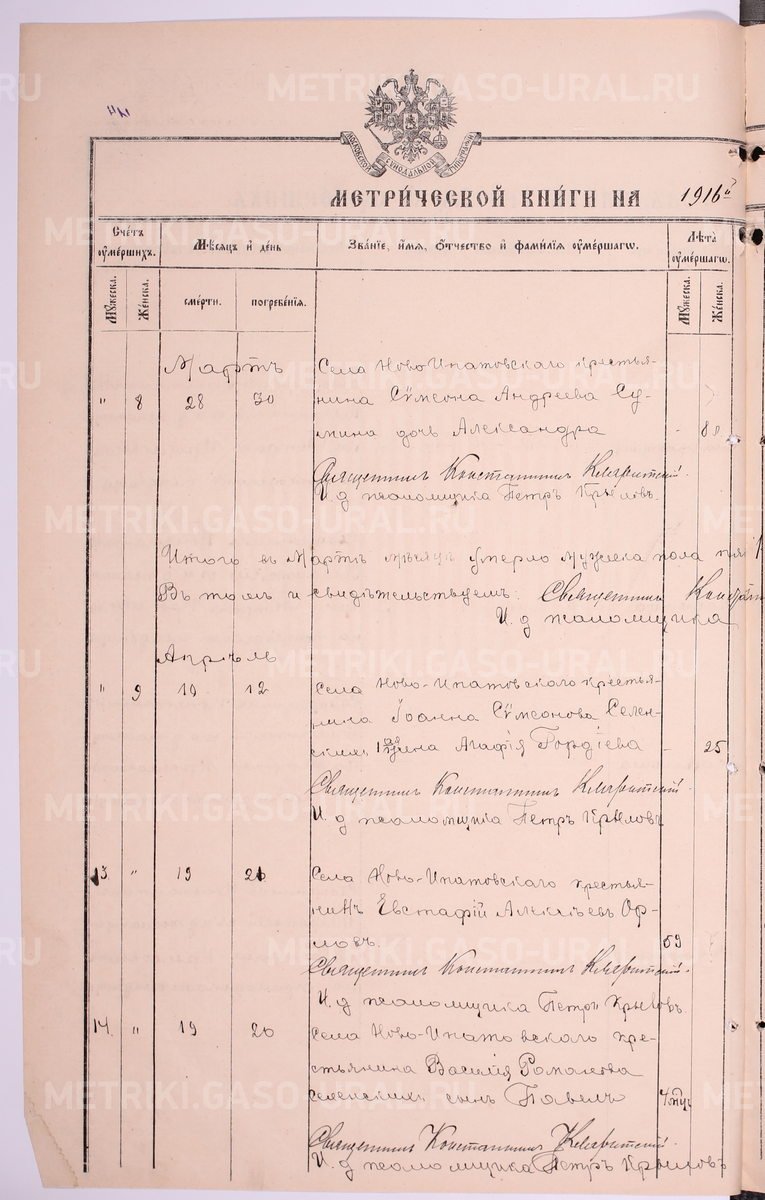 METRIKI.GASO-URAL.RU
МОСКОВСКОЙ СѴНОДАЛЬНОЙ ТИПОГРАФІИ
МЕТРИ́ЧЕСКОЙ КНИ́ГИ НА 1916й
Сче́тъ оуме́ршихъ. Мѣ́сяцъ и҆ де́нь Зва́нїе, и҆́мя, ѻ҆́тчество и҆ фами́лїѧ оуме́ршагѡ. Лѣ́та оуме́ршагѡ.
Мꙋ́жеска. Же́нска. сме́рти. погребе́нїѧ. Мꙋ́жеска. Же́нска.
Мартъ Села Ново-Ипатовскаго крестья-
" 8 28 30 нина Сѵмеона Андреева Су-
мина дочь Александра -
Священникъ Константинъ
И. д псаломщика Петръ Крыловъ.
Итого въ Мартѣ мѣсяцѣ умерло мужска пола
Въ томъ и свидѣтельствуемъ: Священникъ
И. д псаломщика
Апрѣль
" 9 10 12 Села Ново-Ипатовскаго крестья-
нина Іоанна Сѵмеонова Селен-
скихъ жена Агафія Гордіева - 25
Священникъ Константинъ
И. д псаломщика Петръ Крыловъ
13 " 19 20 Села Ново-Ипатовскаго крестья-
нинъ Евстафій Алексѣевъ Ор-
ловъ. 59
Священникъ Константинъ
И. д псаломщика Петръ Крыловъ.
14. " 19 20 Села Ново-Ипатовскаго кре-
стьянина Василія Романова
Селенскихъ сынъ Павелъ 4 мѣс
Священникъ Константинъ
И. д псаломщика Петръ Крыловъ